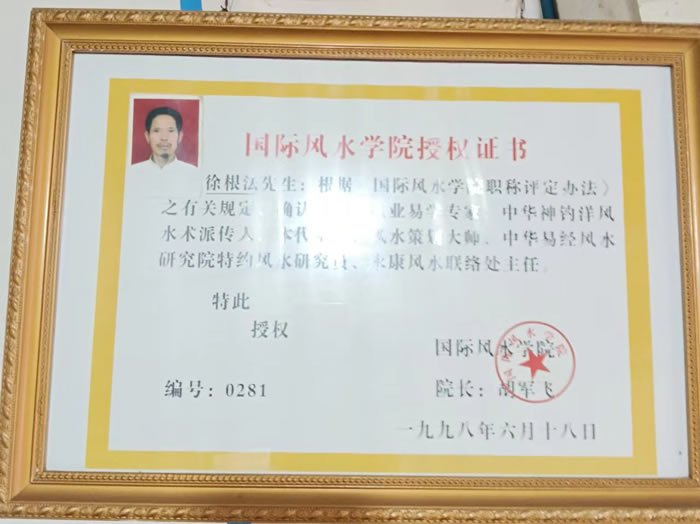 国际风水学院授权证书
徐根法先生：根据 国际风水学 职称评定办法》
之有关规定、确认 业易学专家、中华神钧洋风
水术派传人、 代 水策划大师、中华易经风水
研究院特约风水研究员、永康风水联络处主任。
特此
授权
国际风水学院
编号：0281
院长：胡军飞
一九九八年六月十八日
国际风水学院